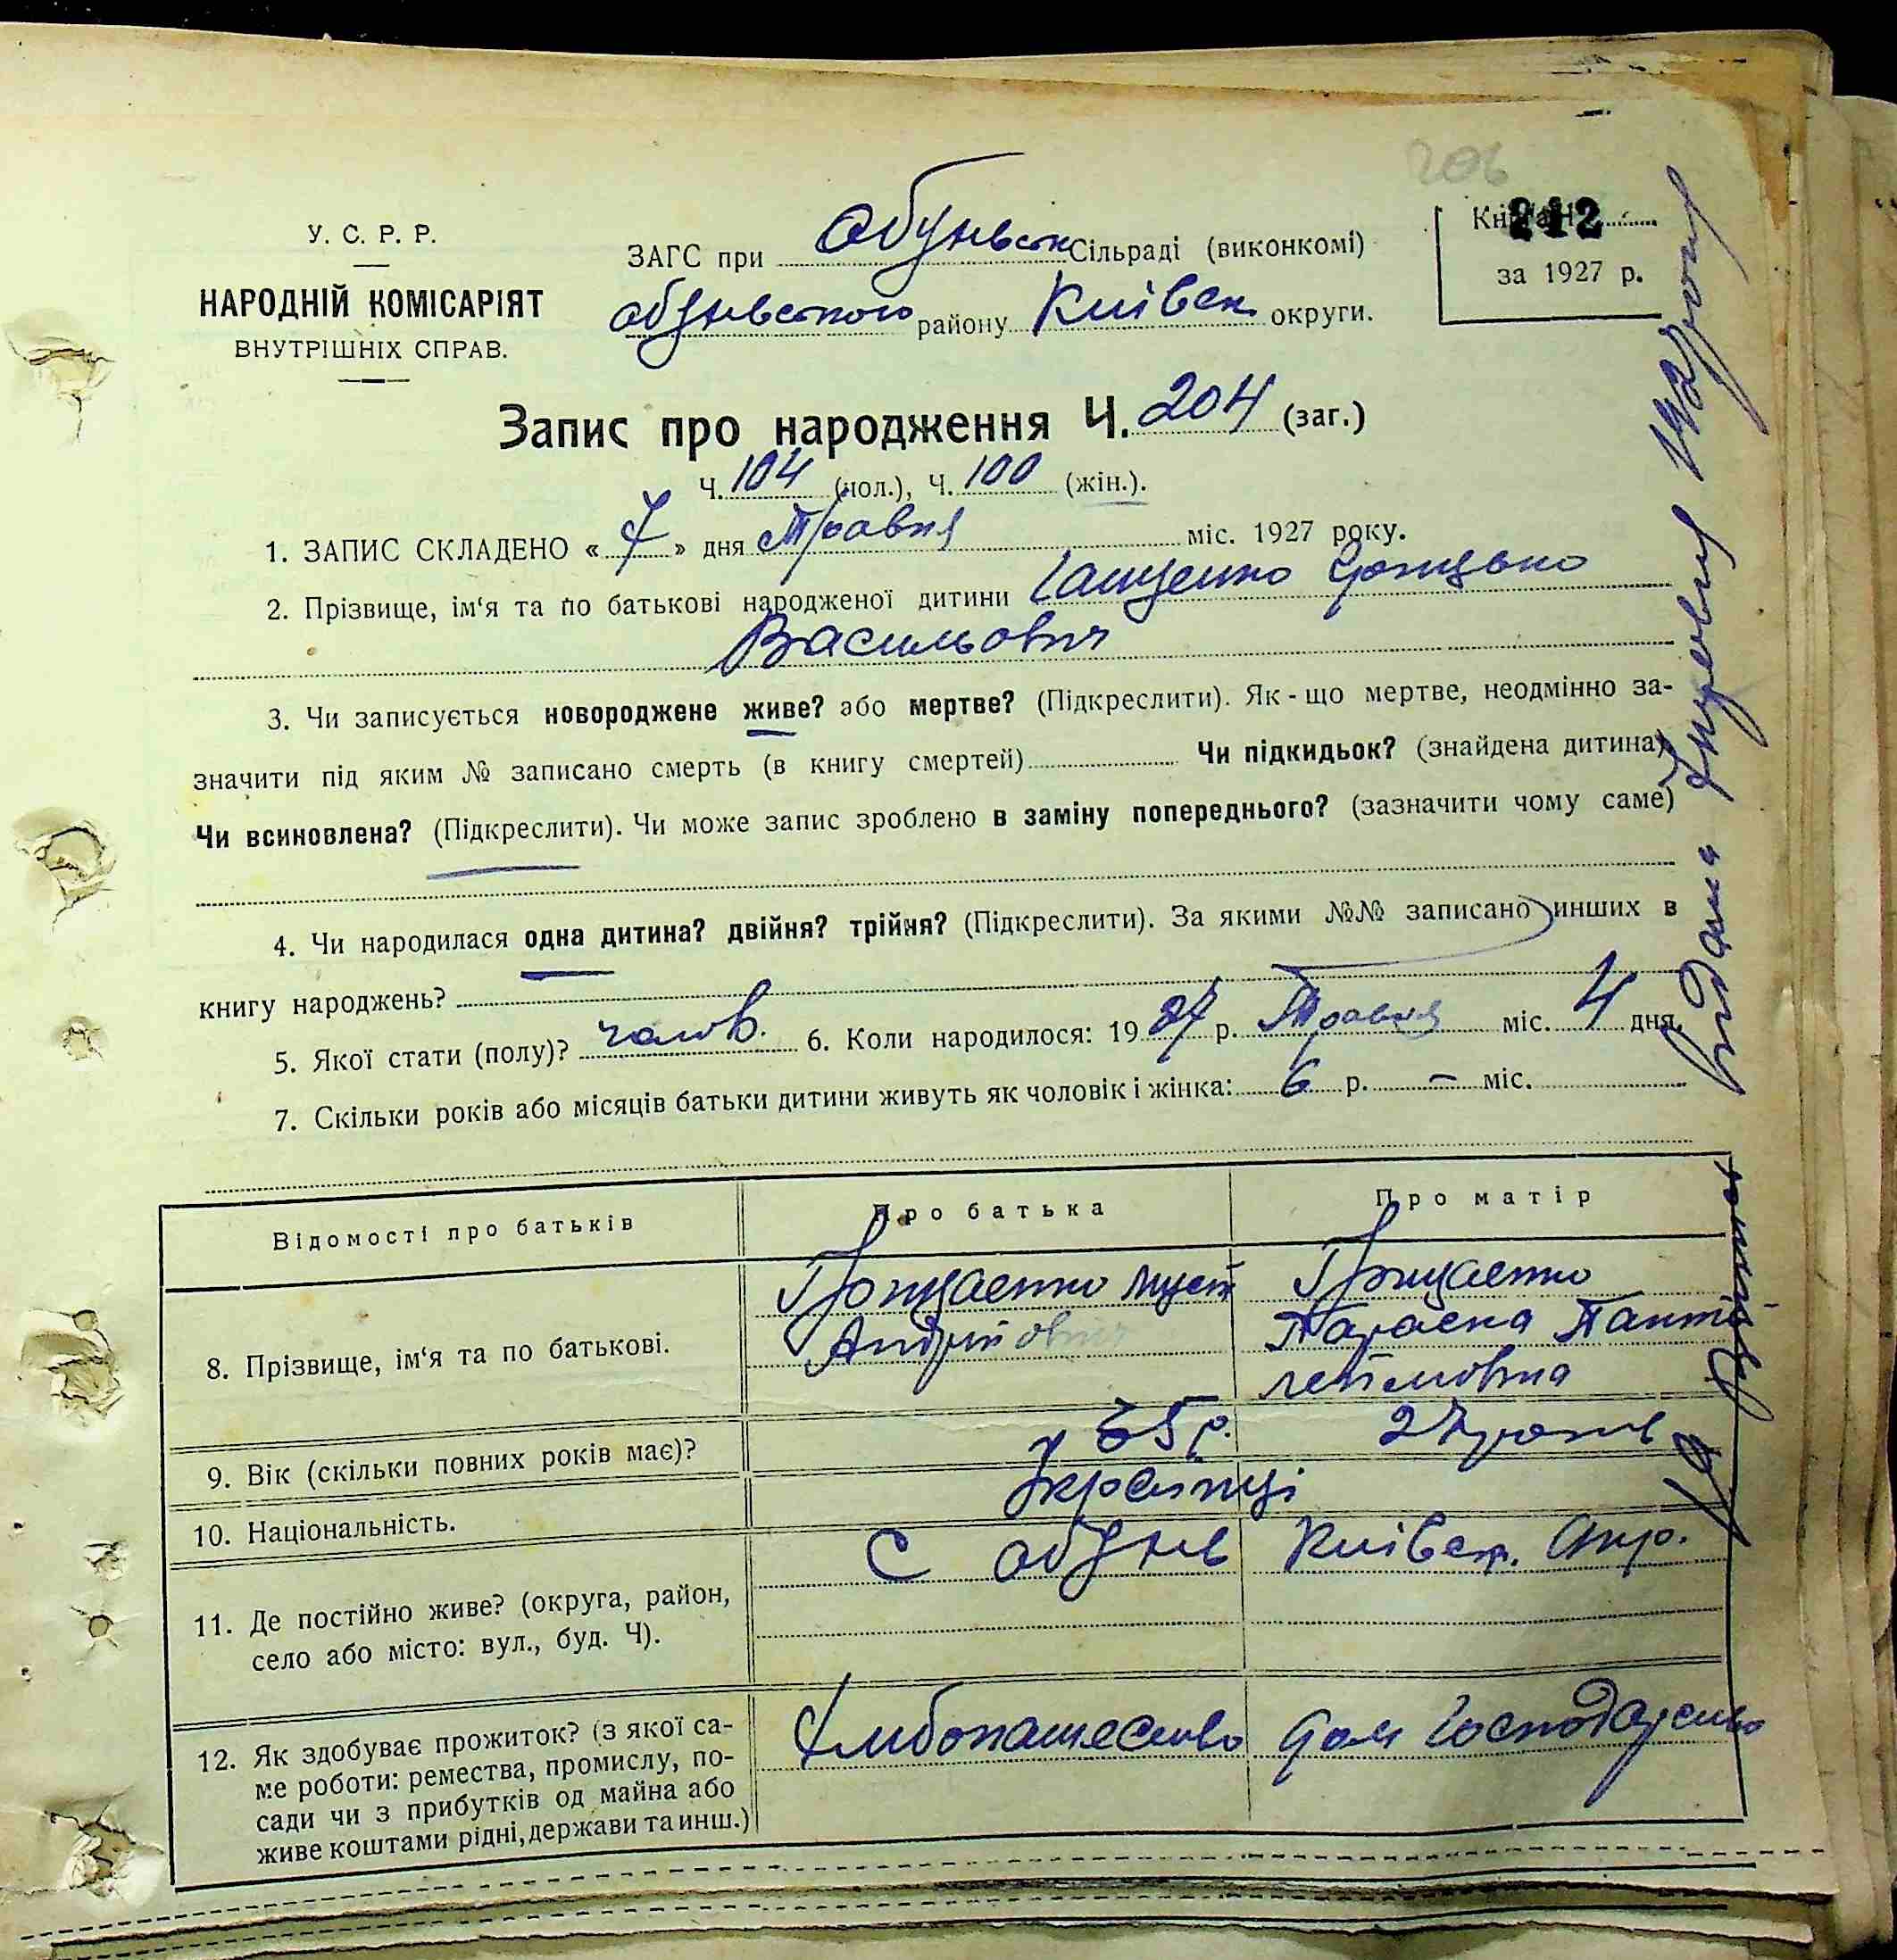 206
У. С. Р. Р.
НАРОДНІЙ КОМІСАРІЯТ
ВНУТРІШНІХ СПРАВ.
ЗАГС при Обухівськ Сільраді (виконкомі)
обухівського району Київськ. округи.
212
за 1927 р.
Запис про народження Ч. 204 (заг.)
Ч. 104 (чол.), Ч. 100 (жін.).
1. ЗАПИС СКЛАДЕНО « 7 » дня Травня міс. 1927 року.
2. Прізвище, ім‘я та по батькові народженої дитини
Васильович
3. Чи записується новороджене живе? або мертве? (Підкреслити). Як - що мертве, неодмінно за-
значити під яким № записано смерть (в книгу смертей) Чи підкидьок? (знайдена дитина)
Чи всиновлена? (Підкреслити). Чи може запис зроблено в заміну попереднього? (зазначити чому саме)
4. Чи народилася одна дитина? двійня? трійня? (Підкреслити). За якими №№ записано инших в
книгу народжень?
5. Якої стати (полу)? чолов. 6. Коли народилося: 19 27 р. Травня міс. 4 дня.
7. Скільки років або місяців батьки дитини живуть як чоловік і жінка: 6 р. – міс.
Відомості про батьків Про батька Про матір
8. Прізвище, ім‘я та по батькові.
Андрійович
9. Вік (скільки повних років має)? 35 р. 27 років
10. Національність. Українці
11. Де постійно живе? (округа, район,
село або місто: вул., буд. Ч).
С Обухів Київськ. Окр.
12. Як здобуває прожиток? (з якої са-
ме роботи: ремества, промислу, по-
сади чи з прибутків од майна або
живе коштами рідні, держави та инш.)
Хлібопашество Дом Господарство